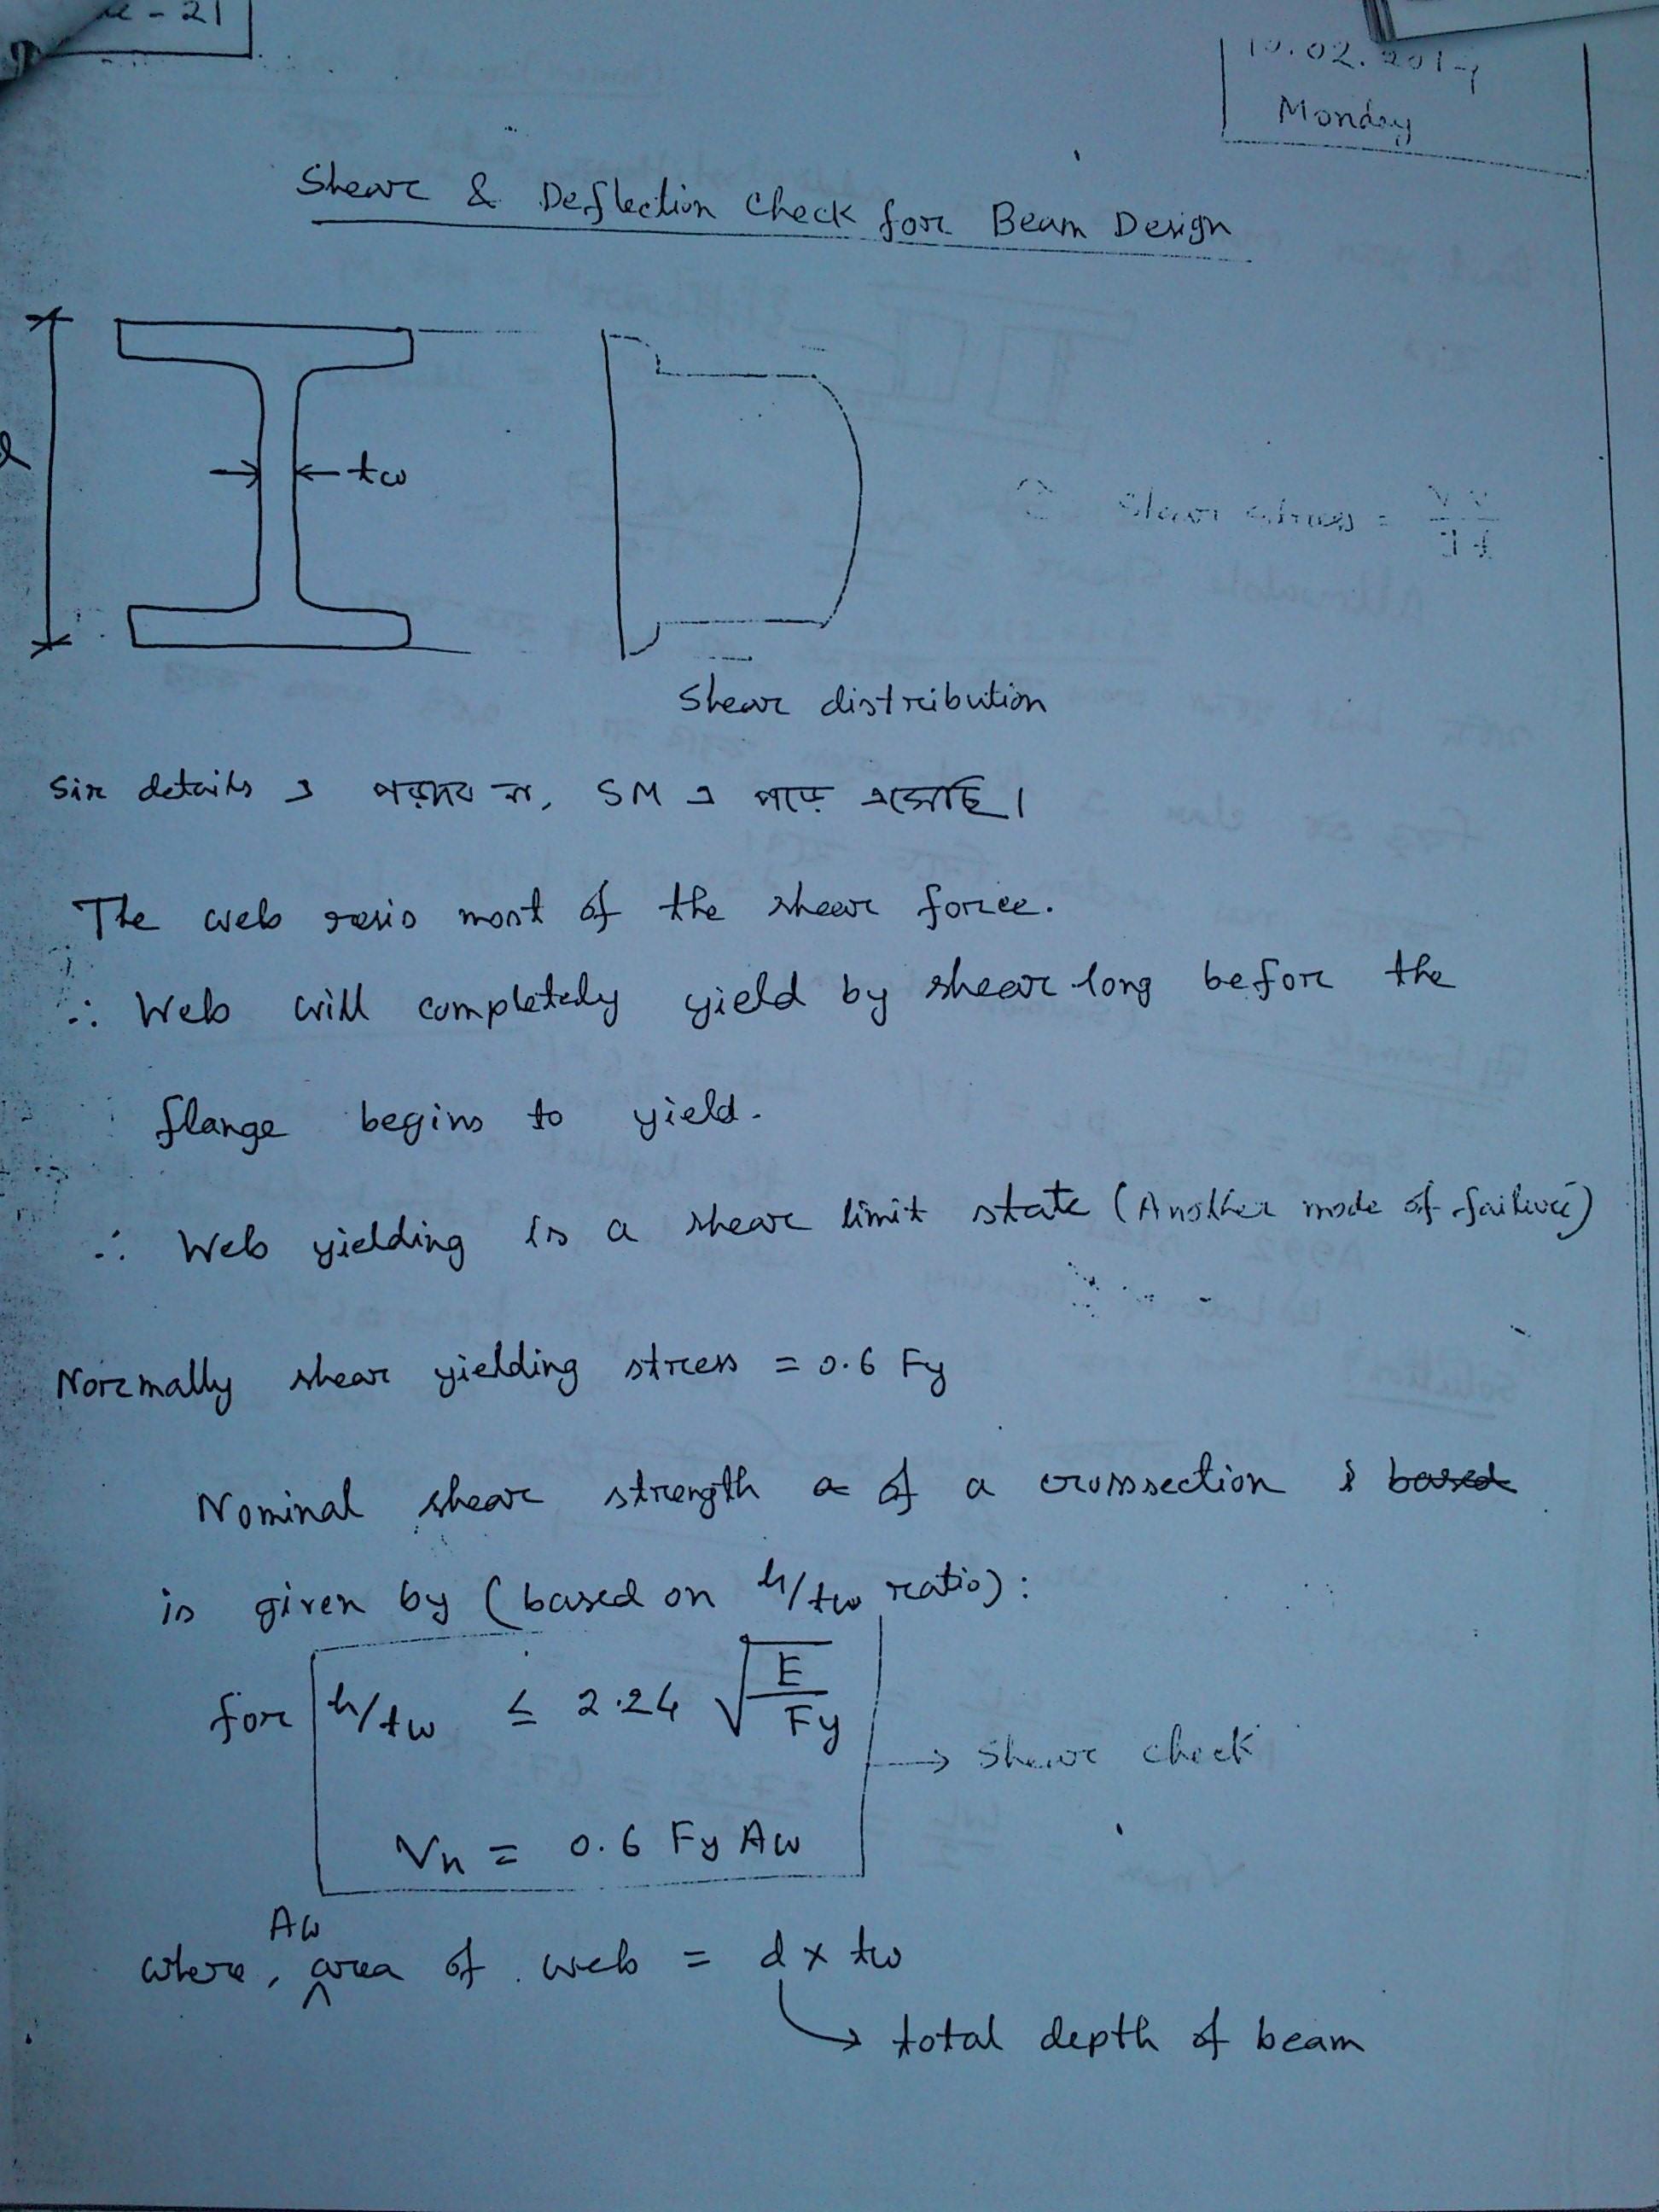 - 21
.02.2014
Monday
Shear & Deflection Check for Beam Design
d
tw
Shear stress = 
Shear distribution
Sir details এ পড়াব না, SM এ পড়ে এসেছি।
The web resis most of the shear force.
∴ Web will completely yield by shear long before the
flange begins to yield.
∴ Web yielding is a shear limit state (Another mode of failure)
Normally shear yielding stress = 0.6 Fy
Nominal shear strength of a crosssection based
is given by (based on h/tw ratio):
for h/tw ≤ 2.24 √(E/Fy)
→ Shear check
Vn = 0.6 Fy Aw
where, Aw area of web = d x tw
→ total depth of beam